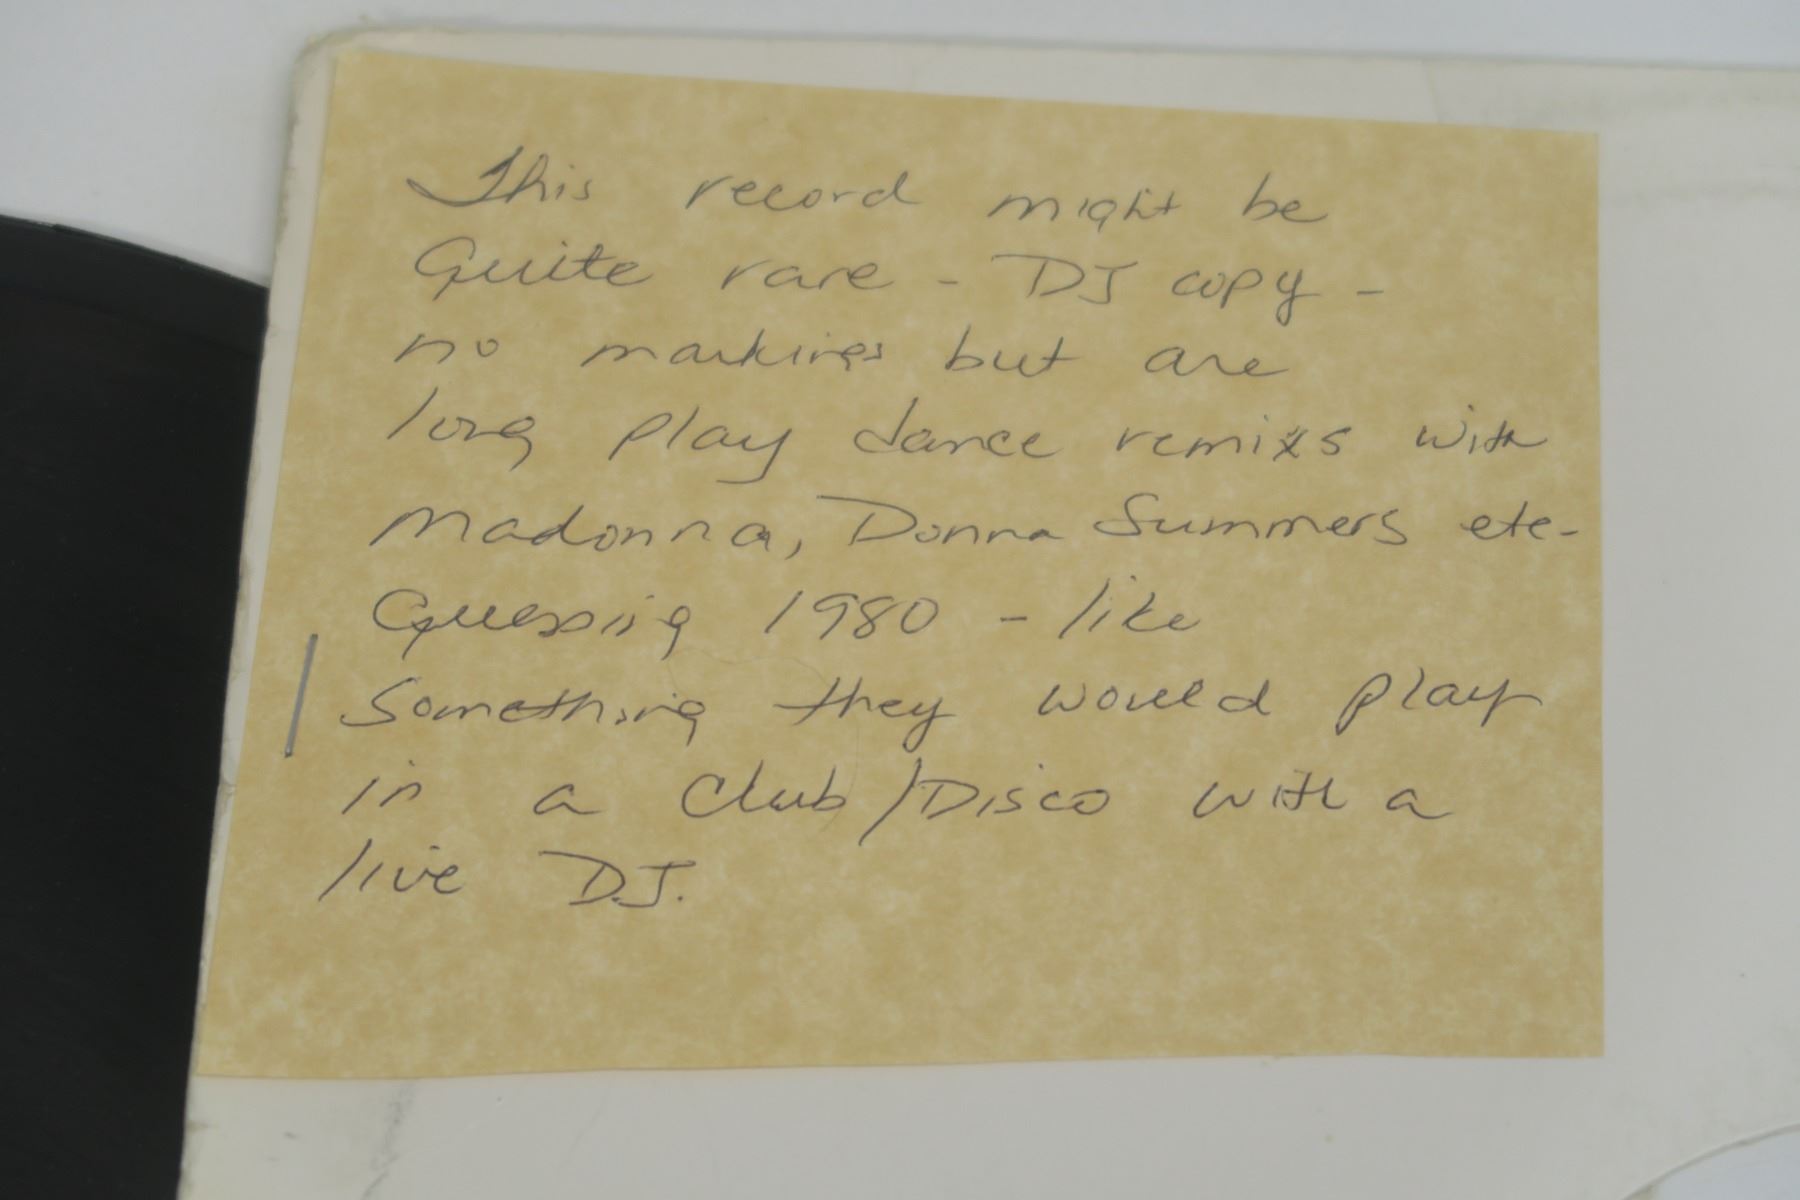 This record might be
Quite rare - DJ copy -
no markings but are
long play dance remixs with
Madonna, Donna Summers etc-
Guessing 1980 - like
Something they would play
in a Club/Disco with a
live D.J.